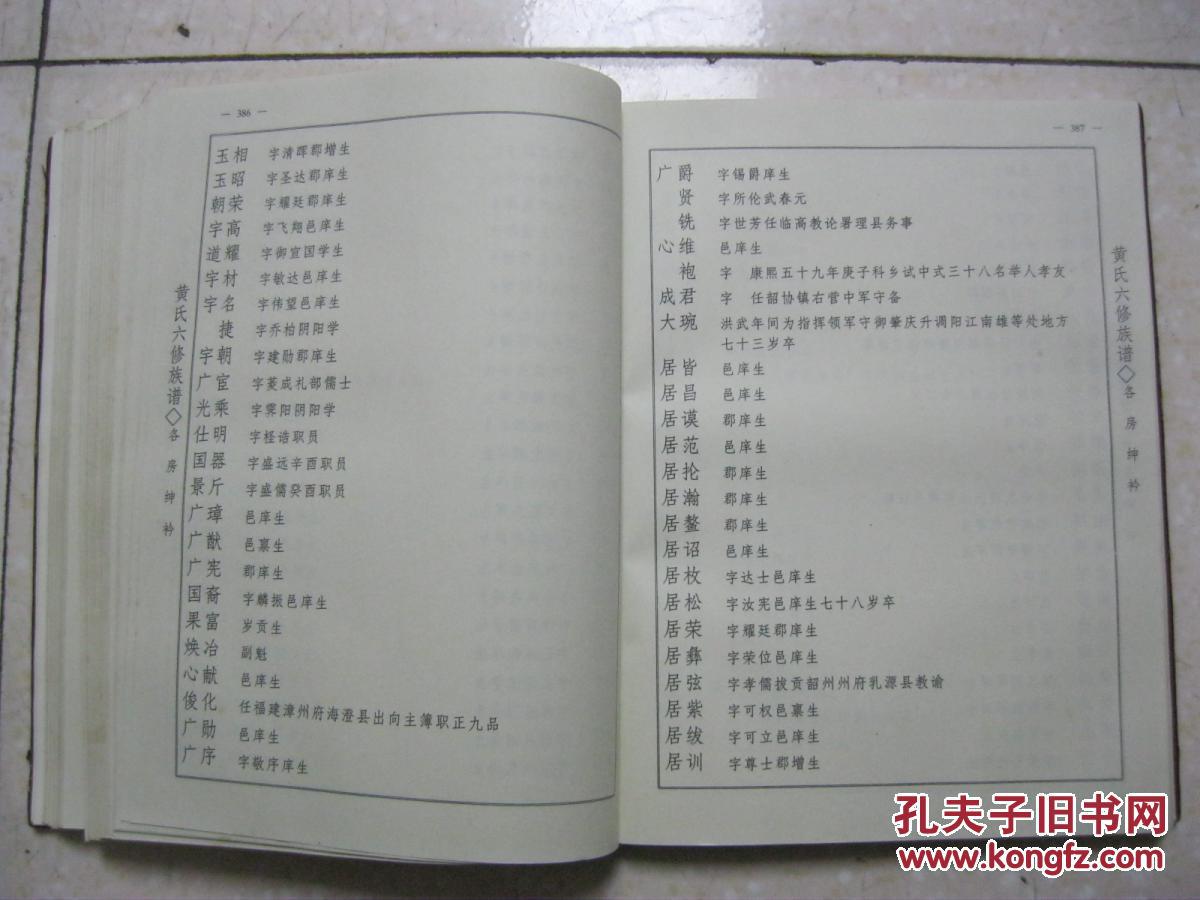 — 386 —
玉相 字清晖郡增生
玉昭 字圣达郡庠生
朝荣 字耀廷郡庠生
宇高 字飞翔邑庠生
道耀 字御宣国学生
宇材 字敏达邑庠生
宇名 字伟望邑庠生
捷 字乔柏阴阳学
宇朝 字建勋郡庠生
广宦 字菱成礼部儒士
光乘 字霁阳阴阳学
仕明 字柽诰职员
国器 字盛远辛酉职员
景斤 字盛儒癸酉职员
广璋 邑庠生
广猷 邑禀生
广宪 郡庠生
国裔 字麟振邑庠生
果富 岁贡生
焕冶 副魁
心献 邑庠生
俊化 任福建漳州府海澄县出向主簿职正九品
广勋 邑庠生
广序 字敬序庠生
黄氏六修族谱◇各房绅衿
— 387 —
广爵 字锡爵庠生
贤 字所伦武春元
铣 字世芳任临高教论署理县务事
心维 邑庠生
袍 字 康熙五十九年庚子科乡试中式三十八名举人孝友
成君 字 任韶协镇右营中军守备
大琬 洪武年间为指挥领军守御肇庆升调阳江南雄等处地方
七十三岁卒
居皆 邑庠生
居昌 邑庠生
居谟 郡庠生
居范 邑庠生
居抡 郡庠生
居瀚 郡庠生
居鳌 郡庠生
居诏 邑庠生
居枚 字达士邑庠生
居松 字汝宪邑庠生七十八岁卒
居荣 字耀廷郡庠生
居彝 字荣位邑庠生
居弦 字孝儒拔贡韶州州府乳源县教谕
居紫 字可权邑禀生
居绂 字可立邑庠生
居训 字尊士郡增生
黄氏六修族谱◇各房绅衿
孔夫子旧书网
www.kongfz.com